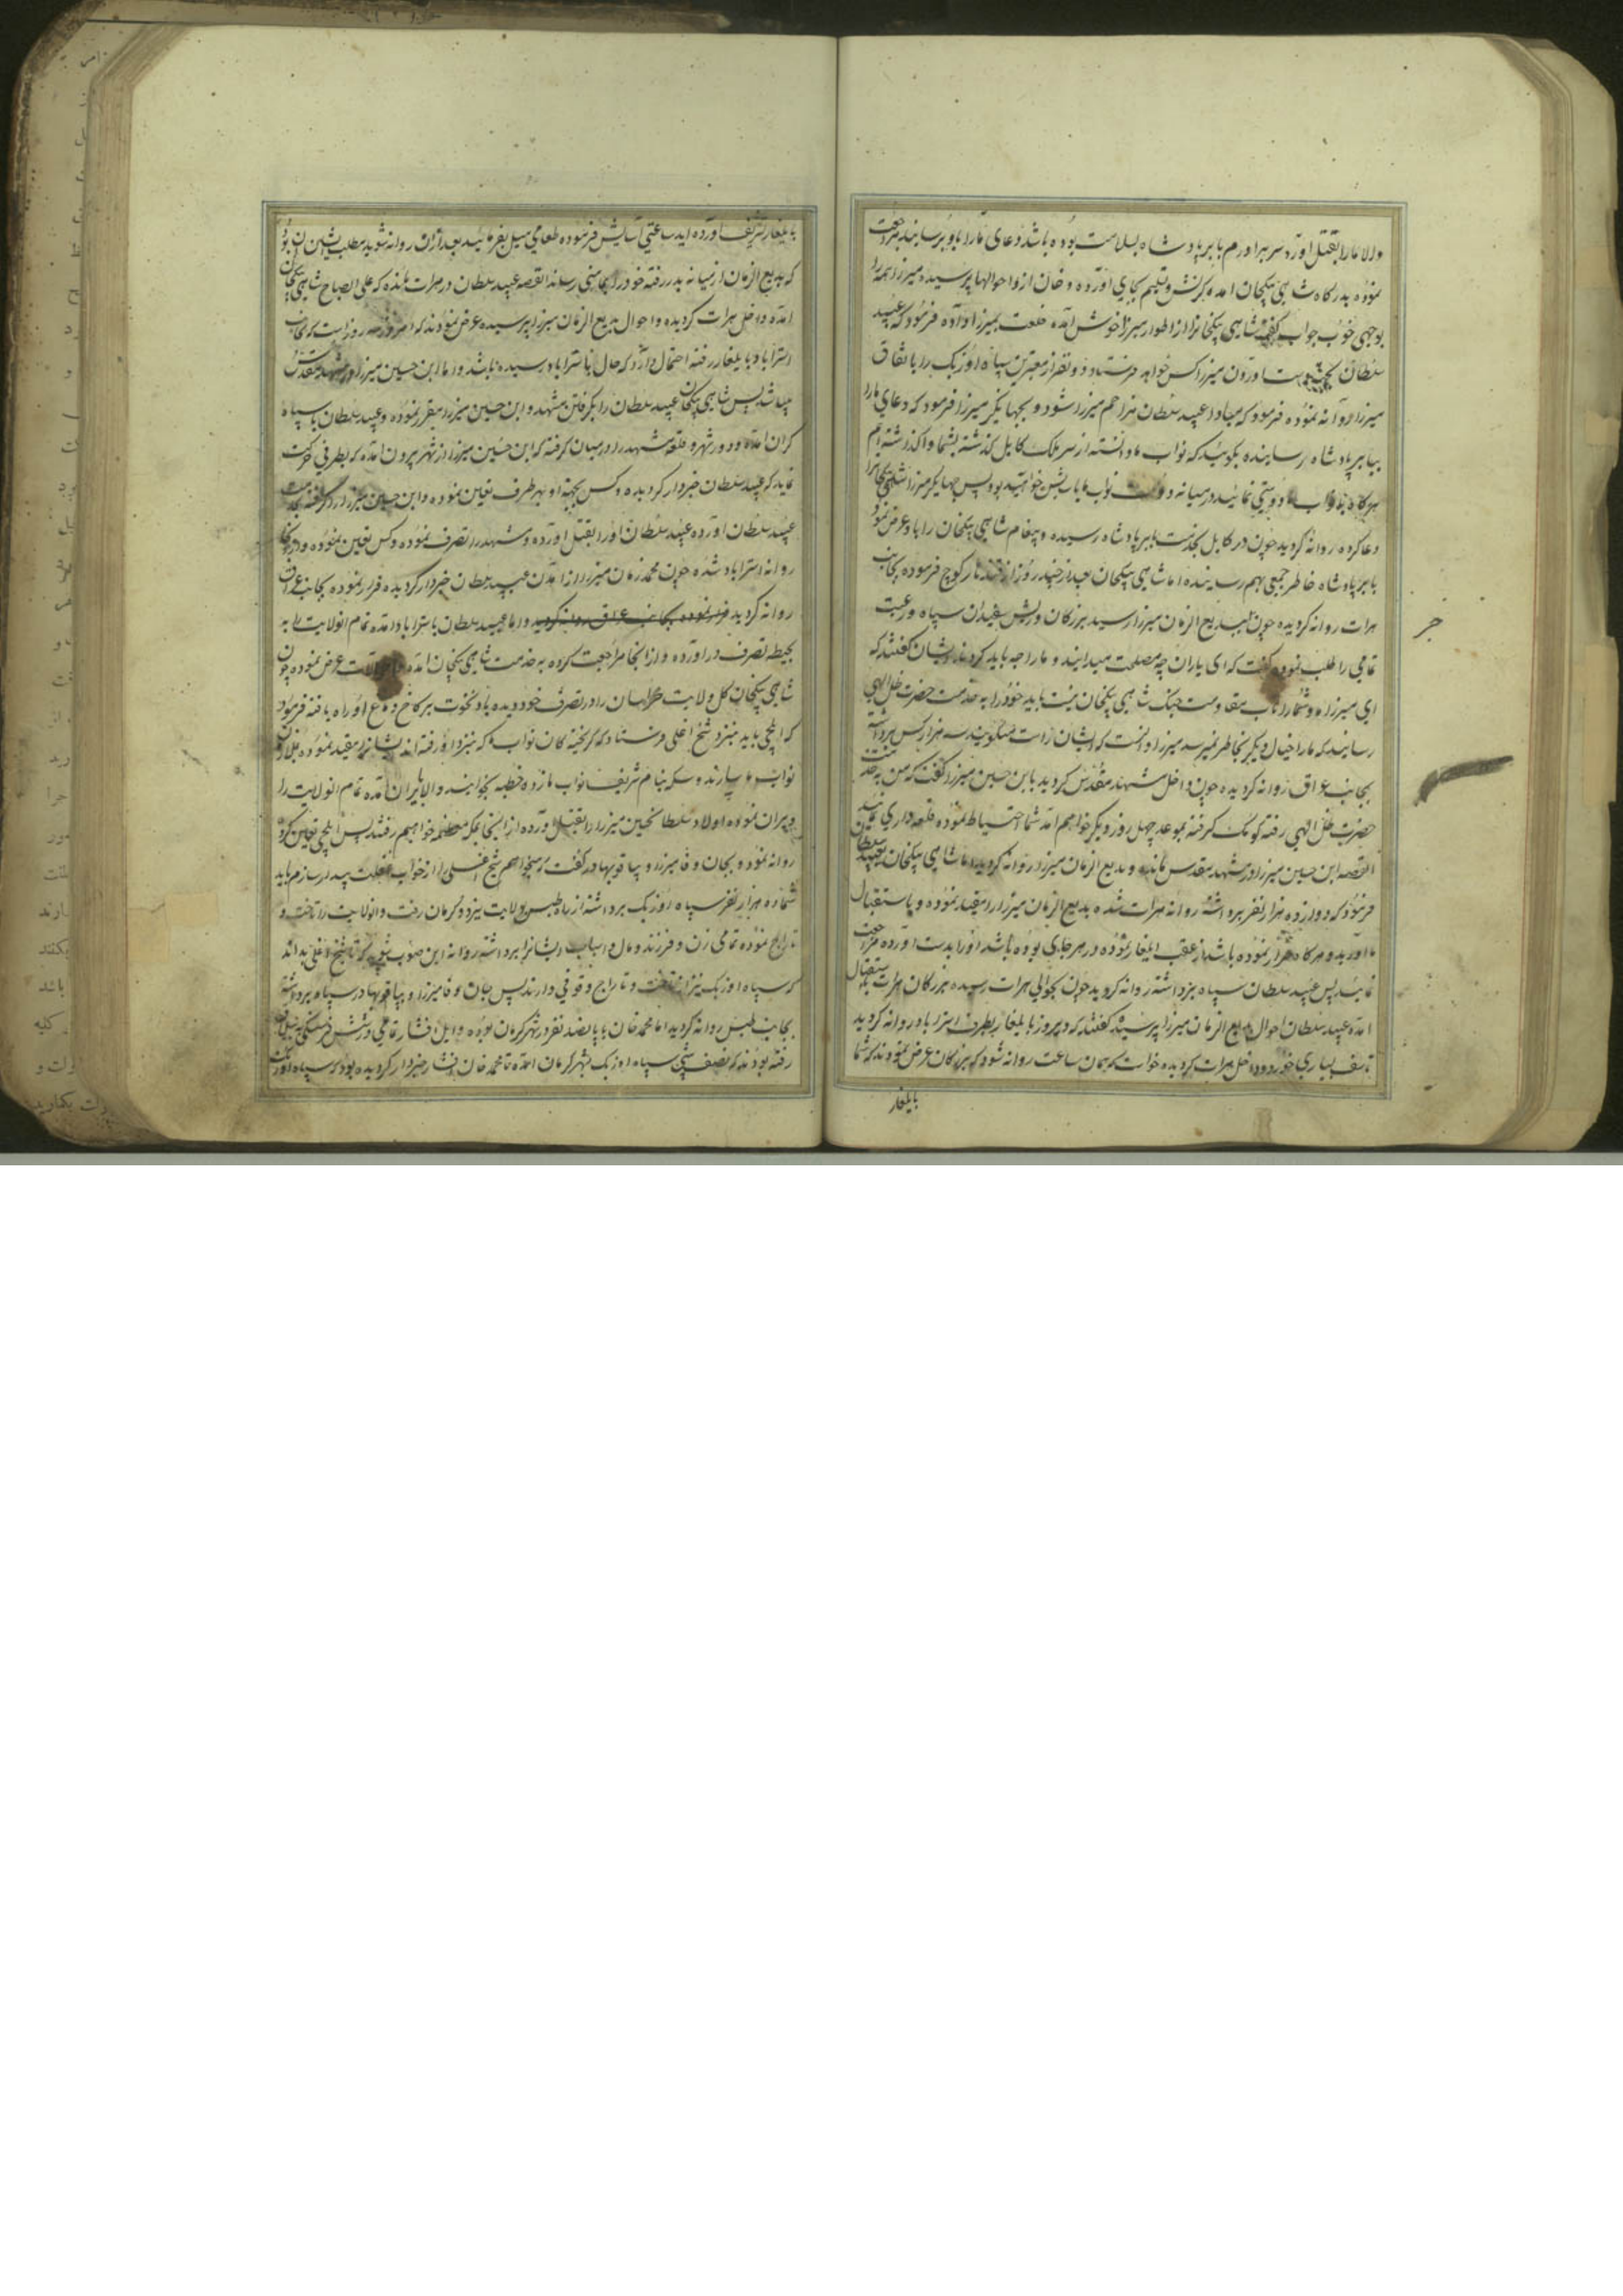 والا مارا بقتل آورد سر برآورم بابر پادشاه بسلامت بوده باشد دعای مارا باو برسانید مراجعت
نموده بدرگاه شاهی بیکخان آمده کرنش و تسلیم بجای آورده و خان ازو احوالها پرسیده میرزا همه را
بوجهی خوب جواب گفته شاهی بیکخانرا از اطوار میرزا خوش آمده خلعت بمیرزا داده فرمود که عبید
سلطان آوردن میرزا کس خواهد فرستاد دو نفر از معتبرین سپاه اوزبک را باتفاق
میرزا روانه نموده فرمود که مبادا عبید سلطان مزاحم میرزا شود و بجهانگیر میرزا فرمود که دعای مارا
ببابر پادشاه رسانیده بگوئید که نواب ما دانسته از سر ملک کابل گذشته بشما واگذاشته‌ایم
هرگاه با نواب ما دوستی نمائید در میانه دولت نواب ما باشن خواهید بود پس جهانگیر میرزا شاهی بیکخانرا
دعا کرده روانه گردید چون در کابل بخدمت بابر پادشاه رسیده و پیغام شاهی بیکخان را باو عرض نمود
بابر پادشاه خاطر جمعی بهم رسانیده اما شاهی بیکخان بعد از چند روز از قندهار کوچ فرموده بجانب
هرات روانه گردیده چون خبر ببدیع الزمان میرزا رسید بزرگان و ریش سفیدان سپاه و رعیت
تمامی را طلب نموده گفت که ای یاران چه مصلحت میدانید و مارا چه باید کرد ایشان گفتند که
ای میرزا ما و شما را تاب مقاومت جنگ شاهی بیکخان نیست باید خود را به خدمت حضرت ظل الهی
رسانید که مارا خیال دیگر بخاطر نمیرسد میرزا دانست که ایشان راست میگویند سه هزار کس برداشته
بجانب عراق روانه گردیده چون داخل مشهد مقدس گردید بابن حسین میرزا گفت که من به خدمت
حضرت ظل الهی رفته کومک گرفته بموعد چهل روز دیگر خواهم آمد شما احتیاط نموده قلعه داری نمائید
القصه ابن حسین میرزا در مشهد مقدس مانده و بدیع الزمان میرزا روانه گردید اما شاهی بیکخان بعبید سلطان
فرمود که دوازده هزار نفر برداشته روانه هرات شده بدیع الزمان میرزا را مقید نموده و باستقبال
ما آورید و هرگاه فرار نموده باشد از عقب ایلغار نموده در هر جای بوده باشد او را بدست آورده مراجعت
نمائید پس عبید سلطان سپاه برداشته روانه گردید چون بحوالی هرات رسیده بزرگان هرات باستقبال
آمده عبید سلطان احوال بدیع الزمان میرزا پرسیده گفتند که دیروز بایلغار بطرف استراباد روانه گردید
تاسف بسیاری خورده داخل هرات گردیده و خواست که همان ساعت روانه شود که بزرگان عرض نمودند که شما
بایلغار
بایلغار تشریف آورده‌اید ساعتی آسایش فرموده طعامی میل بفرمائید بعد از آن روانه شوید مطلب ایشان آن بود
که بدیع الزمان از میانه بدر رفته خود را بمأمنی رساند القصه عبید سلطان در هرات مانده که علی الصباح شاهی بیکخان
آمده داخل هرات گردیده و احوال بدیع الزمان میرزا پرسیده عرض نمودند که امروز سه روز است که بجانب
استراباد بایلغار رفته احتمال دارد که حال باستراباد رسیده باشد و اما ابن حسین میرزا در مشهد مقدس
میباشد پس شاهی بیکخان عبید سلطان را بگرفتن مشهد و ابن حسین میرزا مقرر نموده و عبید سلطان با سپاه
گران آمده و دور شهر و قلعه مشهد را در میان گرفته که ابن حسین میرزا از شهر بیرون آمده که بطرفی حرکت
نماید که عبید سلطان خبردار گردیده و کس بجهت او بهر طرف تعیین نموده و ابن حسین میرزا را گرفته بخدمت
عبید سلطان آورده عبید سلطان او را بقتل آورده و مشهد را تصرف نموده و کس تعیین نموده و از آنجا
روانه استراباد شده چون محمد زمان میرزا از آمدن عبید سلطان خبردار گردیده فرار نموده بجانب عراق
روانه گردید فرار نموده بجانب عراق روانه گردید و اما عبید سلطان باستراباد آمده تمام انولایت را به
بحیطه تصرف درآورده و از آنجا مراجعت کرده به خدمت شاهی بیکخان آمده و احوالات عرض نموده چون
شاهی بیکخان کل ولایت خراسان را در تصرف خود دیده باد نخوت بر کاخ دماغ او راه یافته فرمود
که ایلچی باید بنزد شیخ اغلی فرستاد که گریخته‌گان نواب ما که بنزد او رفته‌اند ایشانرا مقید نموده بغلامان
نواب ما سپارند و سکه بنام شریف نواب ما زده خطبه بخوانند والا بایران آمده تمام انولایت را
ویران نموده اولاد سلطان حسین میرزا را بقتل آورده از اینجا بمکه معظمه خواهیم رفت پس ایلچی تعیین کرده
روانه نمود و بجان وفا میرزا و بیاقو بهادر گفت که میخواهم شیخ اغلی را از خواب غفلت بیدار سازم باید
شما ده هزار نفر سپاه اوزبک برداشته از راه طبس بولایت یزد و کرمان رفت و انولایت را تاخت و
تاراج نموده تمامی زن و فرزند و مال و اسباب ایشانرا برداشته روانه این صوب شوید که تا شیخ اغلی بداند
که سپاه اوزبک نیز از تاخت و تاراج وقوفی دارند پس جان وفا میرزا و بیاقو بهادر سپاه برداشته
بجانب طبس روانه گردید اما محمد خان با پانصد نفر در شهر کرمان بوده و ایل افشار تمامی در شش فرسنگی به ییلاق
رفته بودند که نصف شبی سپاه اوزبک بشهر کرمان آمده تا محمد خان افشار خبردار گردیده بود که سپاه اوزبک